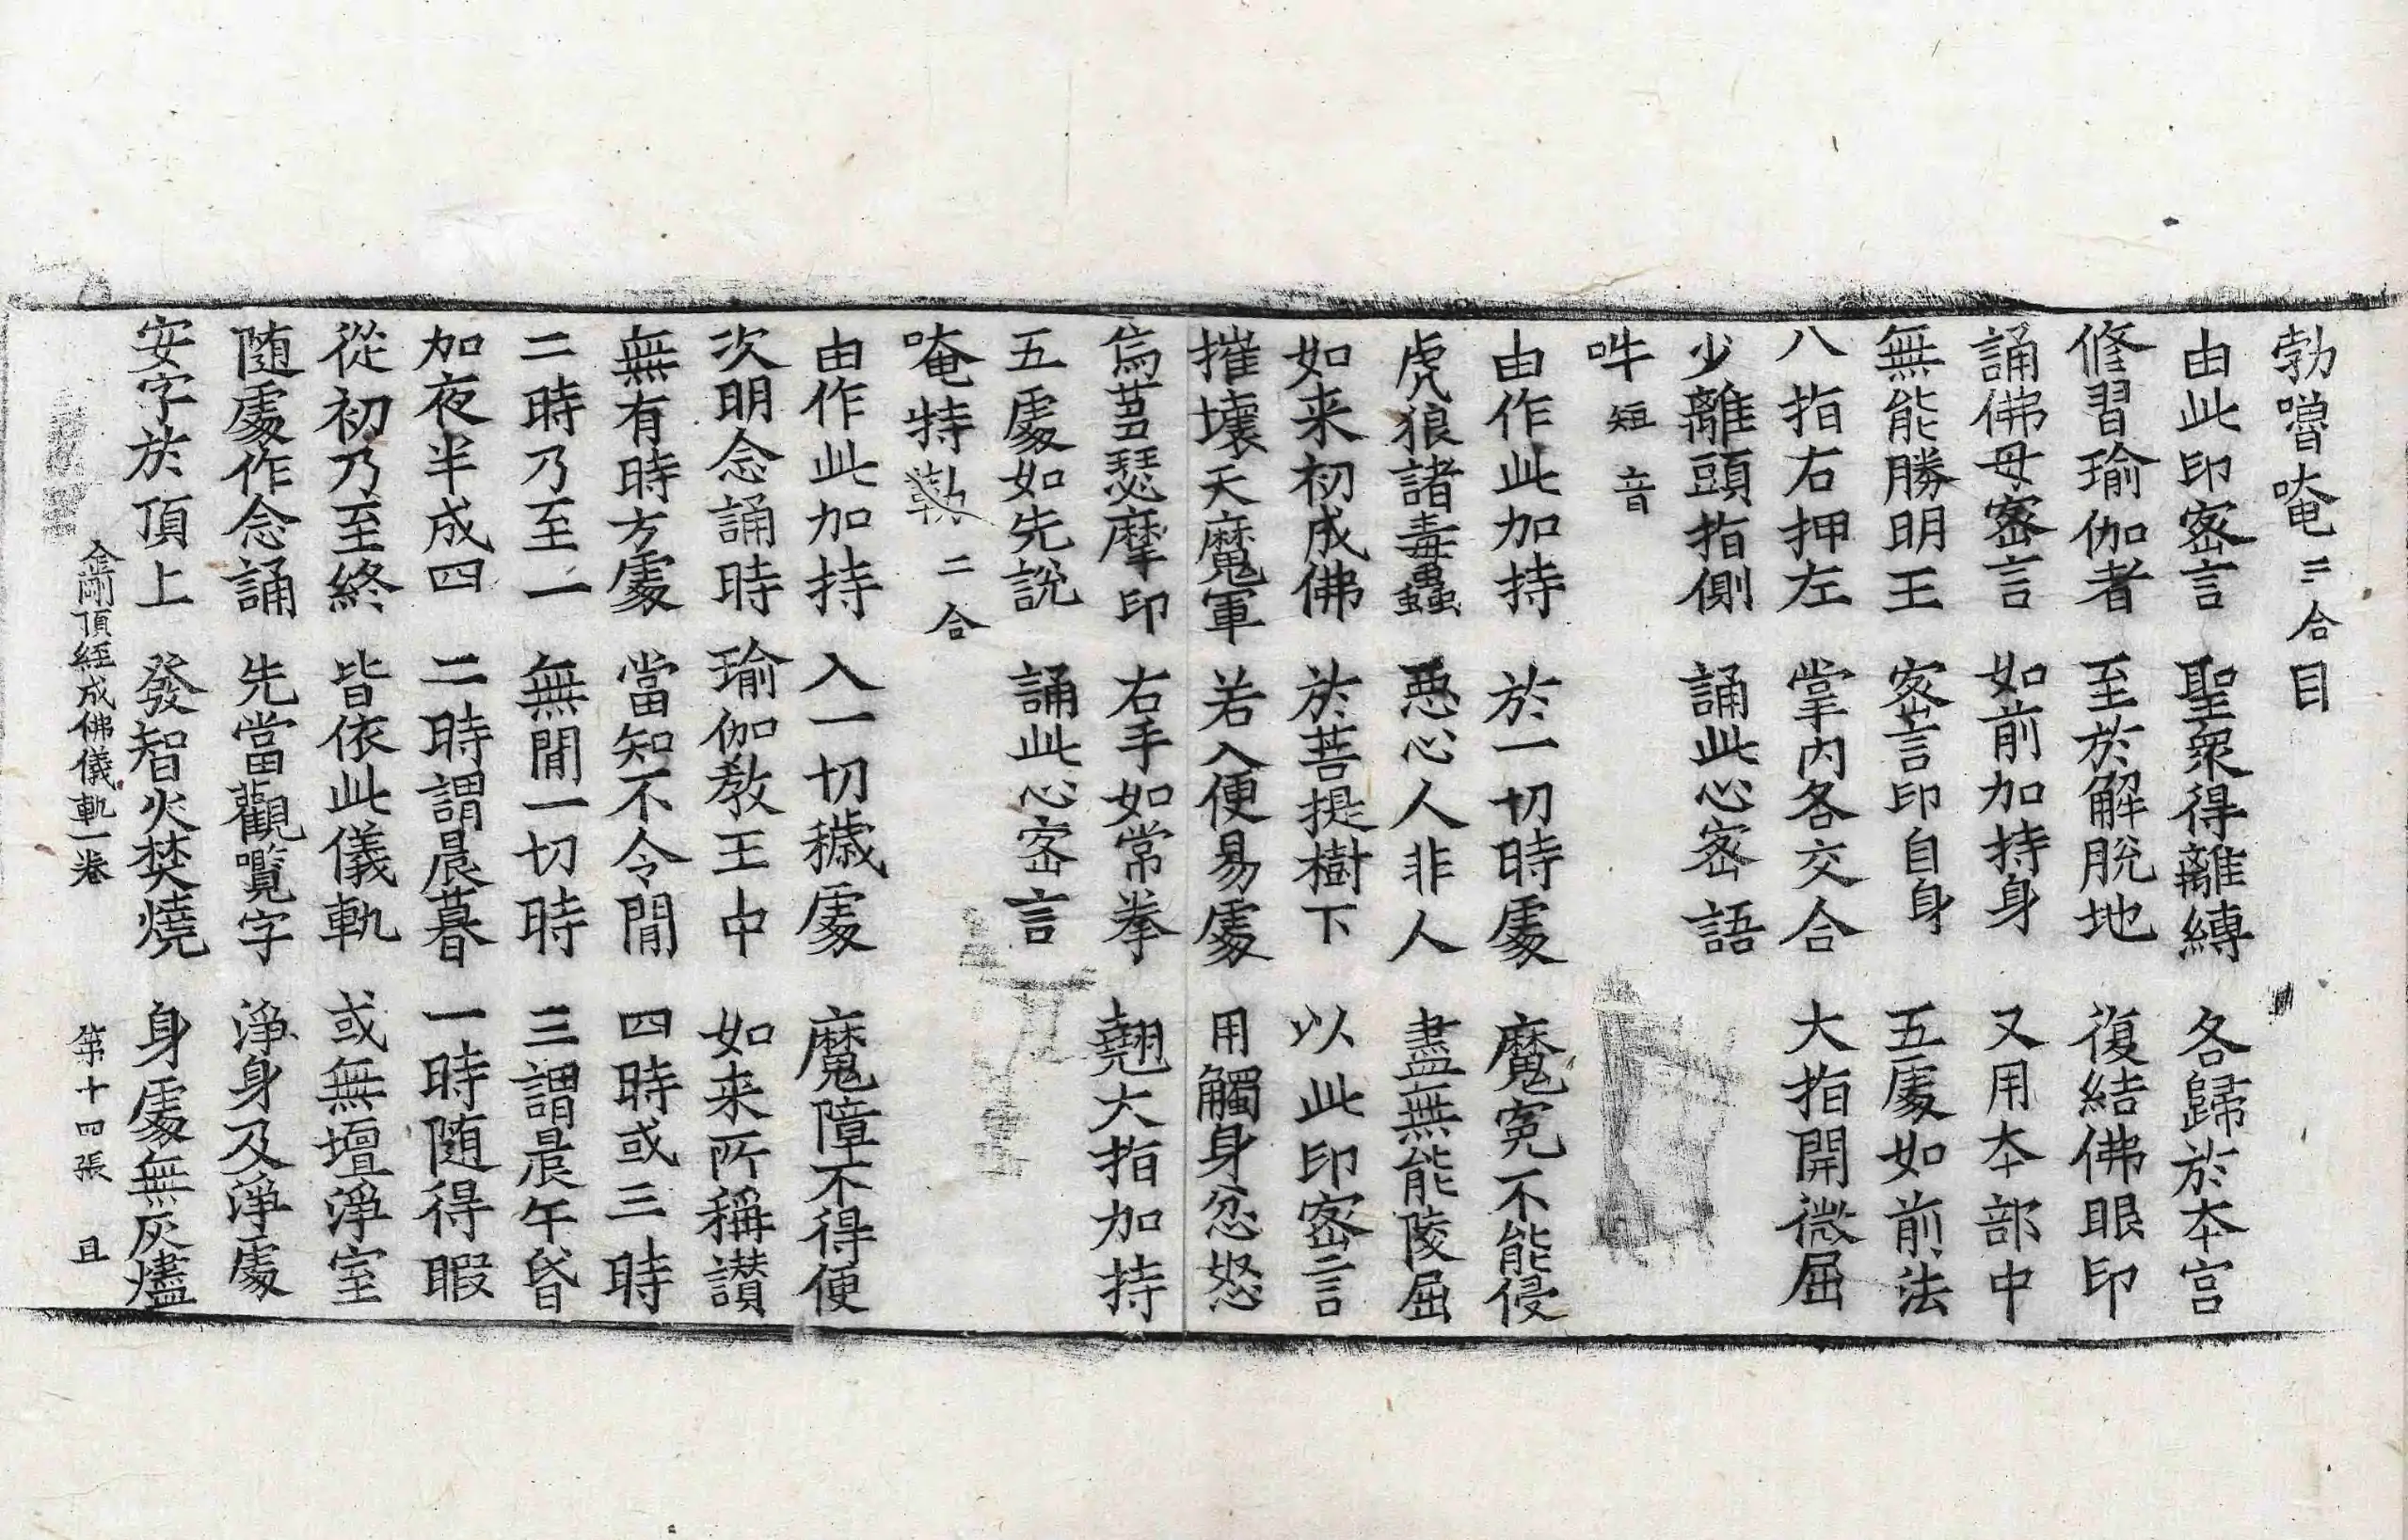 勃嚕唵二合目
由此印密言 聖衆得離縛 各歸於本宫
修習瑜伽者 至於解脫地 復結佛眼印
誦佛母密言 如前加持身 又用本部中
無能勝明王 密言印自身 五處如前法
八指右押左 掌内各交合 大指開微屈
少離頭指側 誦此心密語
吽短音
由作此加持 於一切時處 魔寃不能侵
虎狼諸毒蟲 惡心人非人 盡無能陵屈
如来初成佛 於菩提樹下 以此印密言
摧壞天魔軍 若入便易處 用觸身忿怒
烏蒭瑟摩印 右手如常拳 翹大指加持
五處如先說 誦此心密言
唵特勒二合
由作此加持 入一切穢處 魔障不得便
次明念誦時 瑜伽教王中 如来所稱讃
無有時方處 當知不令閒 四時或三時
二時乃至一 無閒一切時 三謂晨午昏
加夜半成四 二時謂晨暮 一時随得暇
從初乃至終 皆依此儀軌 或無壇淨室
随處作念誦 先當觀覽字 淨身及淨處
安字於頂上 發智火焚燒 身處無灰燼
金剛頂經成佛儀軌一卷 第十四張 且